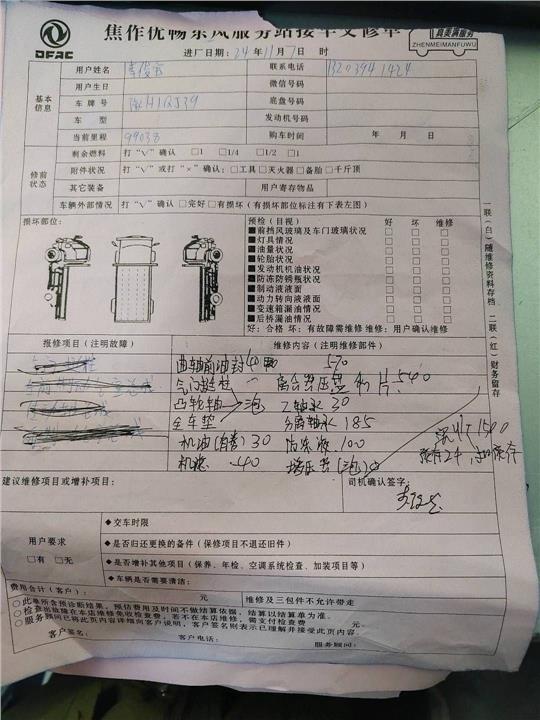 DFAC
焦作优畅东风服务站接车交修单
真卖满服务
ZHENMEIMANFUWU
进厂日期:24年11月7日 时
基本信息
用户姓名 联系电话
用户生日 微信号码
车牌号 底盘号码
车 型 发动机号码
当前里程 99033 购车时间 年 月 日
修前状态
剩余燃料 打“√”确认 □1 □1/4 □1/2 □1
附件状况 打“√”或打“×”确认:□工具□灭火器□备胎□千斤顶
其它装备 用户寄存物品
车辆外部情况 打“√”确认□完好□有损坏(有损坏部位标注有下表左图)
损坏部位:
预检(目视) 好 坏 维修
■前挡风玻璃及车门玻璃状况 □ □ □
■灯具情况 □ □ □
■油量状况 □ □ □
■轮胎状况 □ □ □
■发动机机油状况 □ □ □
■防冻防锈瓶状况 □ □ □
■制动液液面 □ □ □
■动力转向液液面 □ □ □
■变速箱漏油情况 □ □ □
■后桥漏油情况 □ □ □
好:合格 坏:有故障需维修 维修:用户确认维修
一联(白)随维修资料存档 二联(红)财务留存
报修项目(注明故障) 维修内容(注明维修部件)
曲轴前油封 570
气门挺柱 离合器压盘和片 540
凸轮轴 30
全车垫 分离轴承 185
机油(自带)30 防冻液 100
机滤 40 增压器
1500
建议维修项目或增补项目: 司机确认签字:
用户要求
□有 □无
◆交车时限
◆是否归还更换的备件(保修项目不退还旧件)
◆是否增补其他项目(保养、年检、空调系统检查、加装项目等)
◆车辆是否需要清洁:
费用合计(客户): 元 维修及三包件不允许带走
○此单所含预诊断结果,预估费用及时间不做结算依据,结算以结算单为准。
○检查出故障在本店维修免检查费,若不在本店维修,需支付检查费 元。
○服务顾问已将此页内容详细向客户说明,客户签名则表示已理解并接受此页内容。
客户签名: 客户电话: 服务顾问: